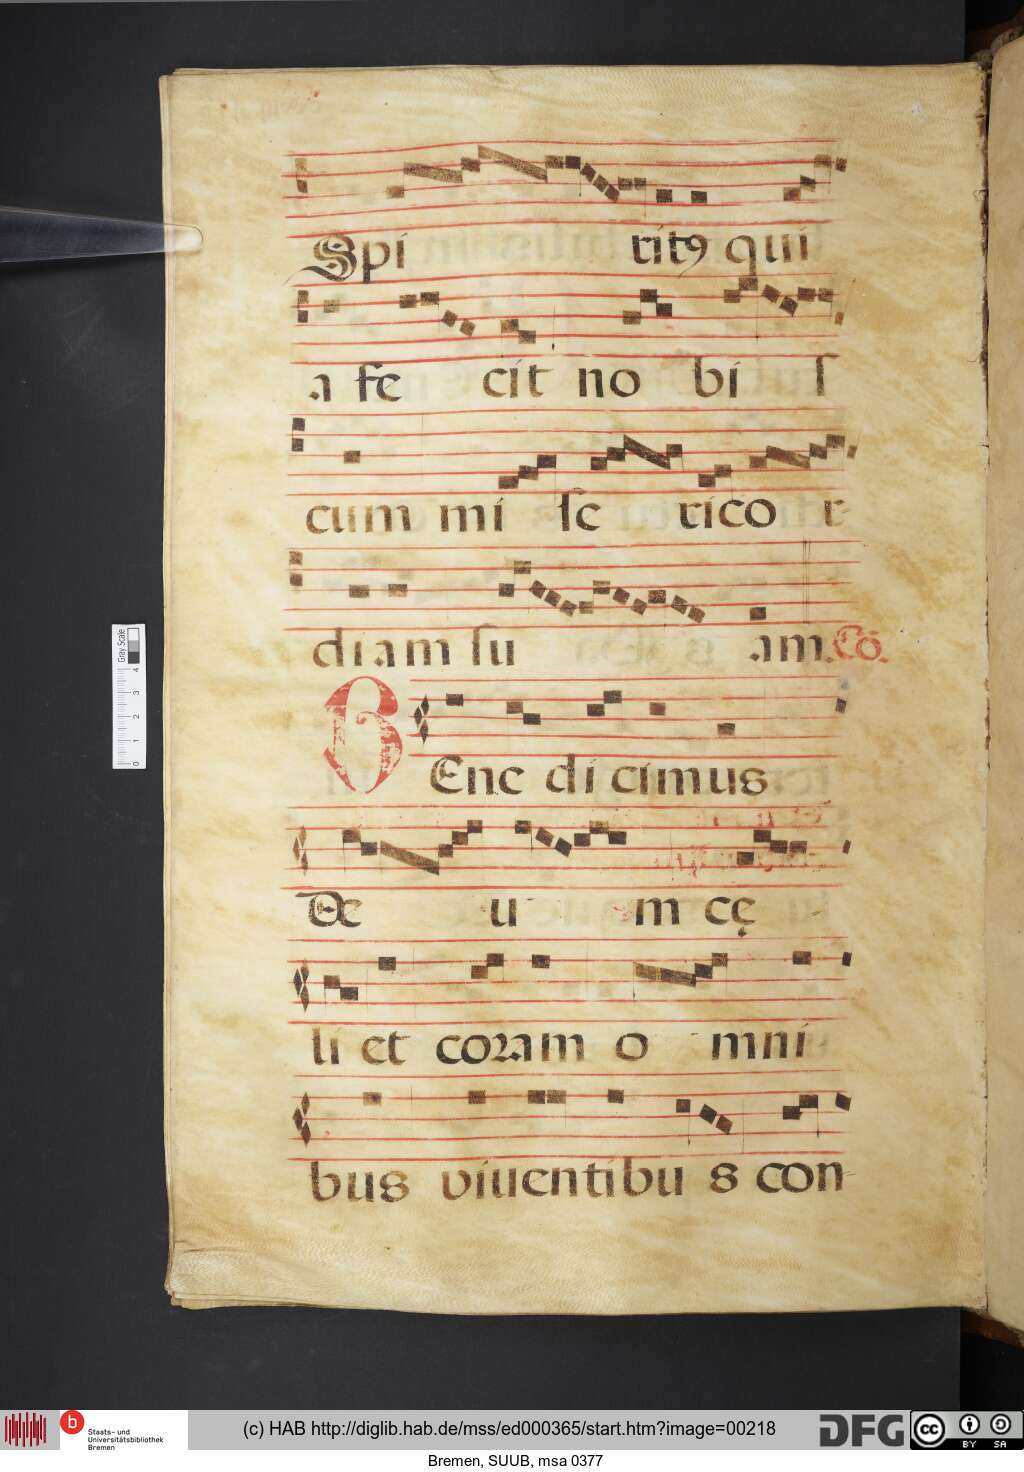 Spi ritꝰ qui
a fe cit no bi ſ
cum mi ſe rico r
diam ſu am. Cō.
BEne di cimus
De u m cę
li et coꝛam o mni
bus viuentibu s con
Gray Scale
4 3 2 1 0
b
Staats- und
Universitätsbibliothek
Bremen
(c) HAB http://diglib.hab.de/mss/ed000365/start.htm?image=00218
DFG
cc BY SA
Bremen, SUUB, msa 0377